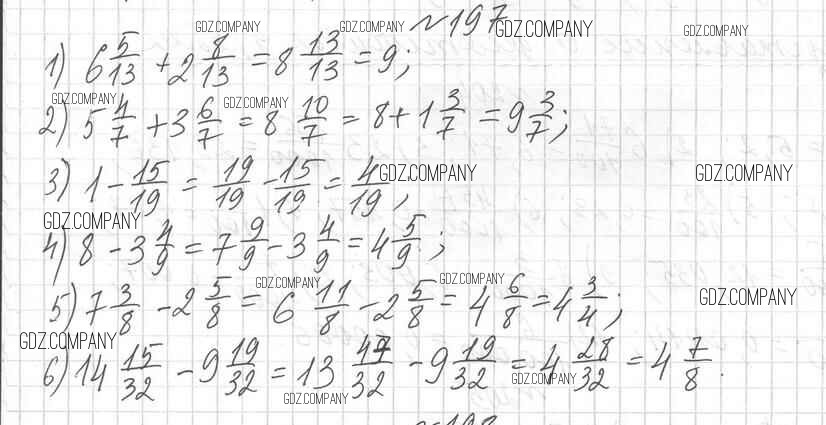 №197
1) 6 5/13 + 2 8/13 = 8 13/13 = 9;
2) 5 4/7 + 3 6/7 = 8 10/7 = 8 + 1 3/7 = 9 3/7;
3) 1 - 15/19 = 19/19 - 15/19 = 4/19;
4) 8 - 3 4/9 = 7 9/9 - 3 4/9 = 4 5/9;
5) 7 3/8 - 2 5/8 = 6 11/8 - 2 5/8 = 4 6/8 = 4 3/4;
6) 14 15/32 - 9 19/32 = 13 47/32 - 9 19/32 = 4 28/32 = 4 7/8.
GDZ.COMPANY GDZ.COMPANY GDZ.COMPANY GDZ.COMPANY
GDZ.COMPANY GDZ.COMPANY
GDZ.COMPANY GDZ.COMPANY
GDZ.COMPANY
GDZ.COMPANY GDZ.COMPANY GDZ.COMPANY
GDZ.COMPANY
GDZ.COMPANY
GDZ.COMPANY